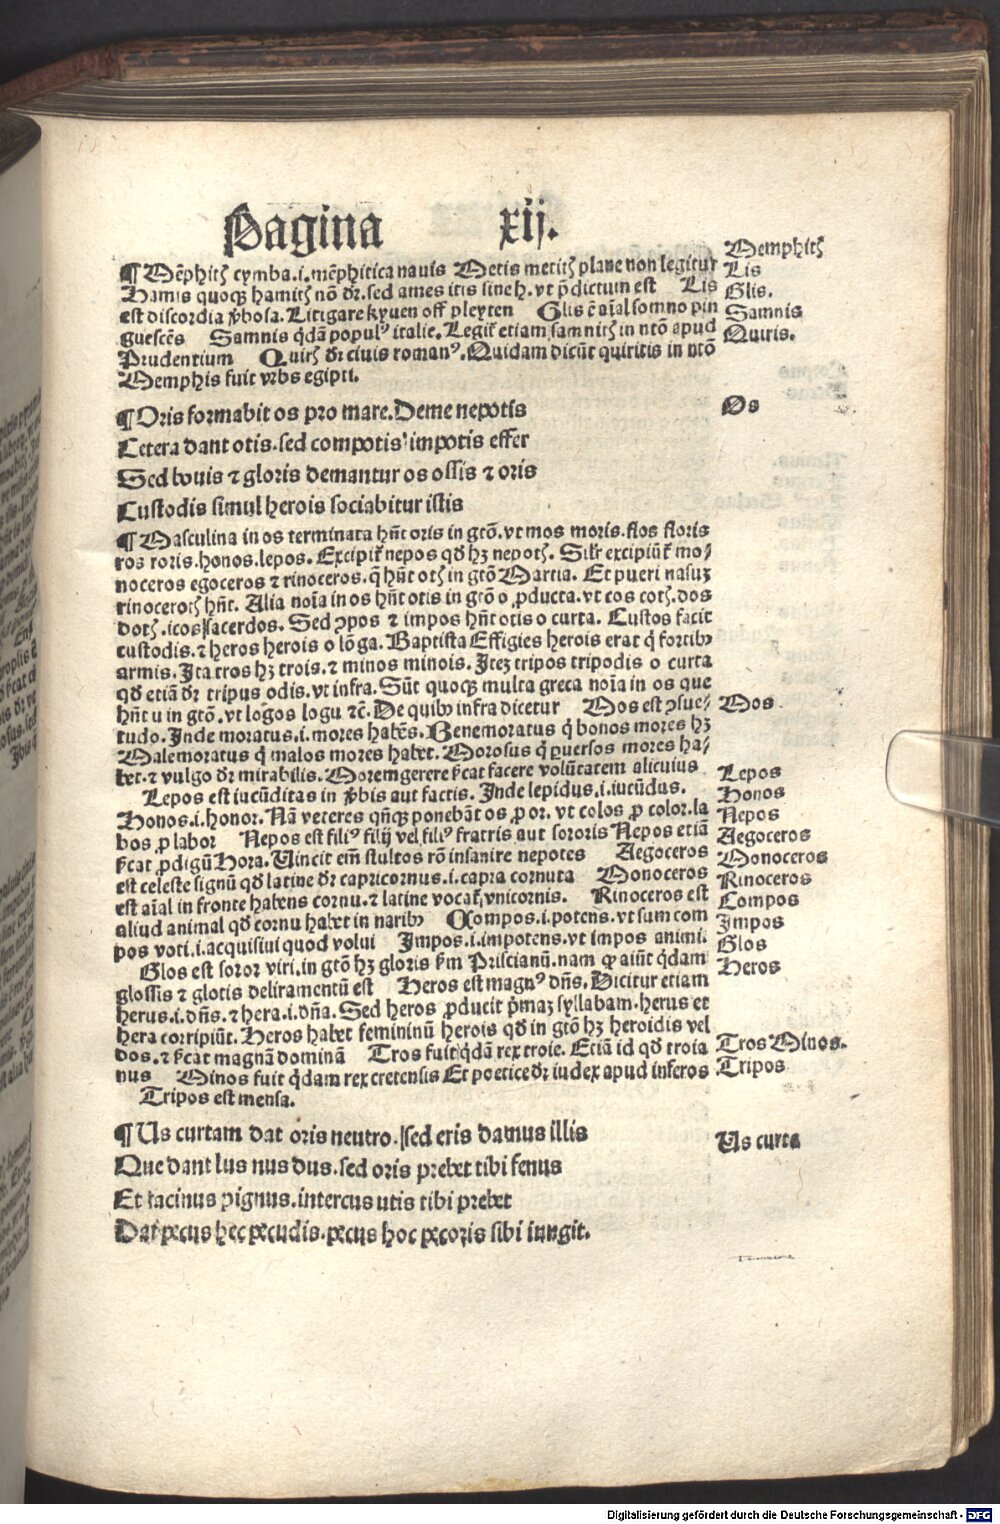 Pagina xij.
¶ Mēphitꝭ cymba.i.mēphitica nauis Metis metitꝭ plane non legitur
Hamis quoqꝫ hamitꝭ nō dr̄.sed ames itis sine h.vt p̄dictum est Lis
est discordia ꝟbosa.Litigare kyuen off pleyten Glis ē aīal somno pin
guescēs Samnis q̄dā populꝰ italie.Legit̄ etiam samnitꝭ in ntō apud
Prudentium Quirꝭ dr̄ ciuis romanꝰ.Quidam dicūt quiritis in ntō
Memphis fuit vrbs egipti.
¶ Oris formabit os pro mare.Deme nepotis
Cetera dant otis.sed compotis impotis effer
Sed bouis ⁊ gloris demantur os ossis ⁊ oris
Custodis simul herois sociabitur istis
¶ Masculina in os terminata hn̄t oris in gtō.vt mos moris.flos floris
ros roris.honos.lepos.Excipit̄ nepos qd̄ hꝫ nepotꝭ. Silr̄ excipiūt̄ mo⸗
noceros egoceros ⁊ rinoceros.q̄ hn̄t otꝭ in gtō Martia. Et pueri nasuꝫ
rinocerotꝭ hn̄t. Alia noīa in os hn̄t otis in gtō o ꝓducta.vt cos cotꝭ.dos
dotꝭ.icos sacerdos. Sed ꝯpos ⁊ impos hn̄t otis o curta. Custos facit
custodis.⁊ heros herois o lōga. Baptista Effigies herois erat q̄ fortibꝫ
armis.Ita tros hꝫ trois.⁊ minos minois. Iteꝫ tripos tripodis o curta
qd̄ etiā dr̄ tripus odis.vt infra.Sūt quoqꝫ multa greca noīa in os que
hn̄t u in gtō.vt logos logu ⁊c̄.De quibꝫ infra dicetur Mos est ꝯsue⸗
tudo.Inde moratus.i.mores habēs.Benemoratus q̄ bonos mores hꝫ
Malemoratus q̄ malos mores habet.Morosus q̄ ꝑuersos mores ha⸗
bet.⁊ vulgo dr̄ mirabilis.Moremgerere ẜcat facere volūtatem alicuius
Lepos est iucūditas in ꝟbis aut factis. Inde lepidus.i.iucūdus.
Honos.i.honor.Nā veteres qn̄qꝫ ponebāt os ꝓ or.vt colos ꝓ color.la
bos ꝓ labor Nepos est filiꝰ filij vel filiꝰ fratris aut sororis Nepos etiā
ẜcat ꝓdigū Hora.Uincit em̄ stultos rō insanire nepotes Aegoceros
est celeste signū qd̄ latine dr̄ capricornus.i.capra cornuta Monoceros
est aīal in fronte habens cornu.⁊ latine vocat̄ vnicornis. Rinoceros est
aliud animal qd̄ cornu habet in naribꝫ Compos.i.potens.vt sum com
pos voti.i.acquisiui quod volui Impos.i.impotens.vt impos animi.
Glos est soror viri.in gtō hꝫ gloris ẜm Priscianū.nam ꝙ aiūt q̄dam
glossis ⁊ glotis deliramentū est Heros est magnꝰ dn̄s.Dicitur etiam
herus.i.dn̄s.⁊ hera.i.dn̄a.Sed heros ꝓducit p̄maꝫ syllabam.herus et
hera corripiūt.Heros habet femininū herois qd̄ in gtō hꝫ heroidis vel
dos.⁊ ẜcat magnā dominā Tros fuit q̄dā rex troie. Etiā id qd̄ troia
nus Minos fuit q̄dam rex cretensis Et poetice dr̄ iudex apud inferos
Tripos est mensa.
¶ Us curtam dat oris neutro.sed eris damus illis
Que dant lus nus dus.sed oris prebet tibi fenus
Et facinus pignus.intercus utis tibi prebet
Dat pecus hec pecudis.pecus hoc pecoris sibi iungit.
Memphitꝭ
Lis
Glis.
Samnis
Quiris.
Os
Mos
Lepos
Honos
Nepos
Aegoceros
Monoceros
Rinoceros
Compos
Impos
Glos
Heros
Tros Minos.
Tripos
Us curta
Digitalisierung gefördert durch die Deutsche Forschungsgemeinschaft - DFG